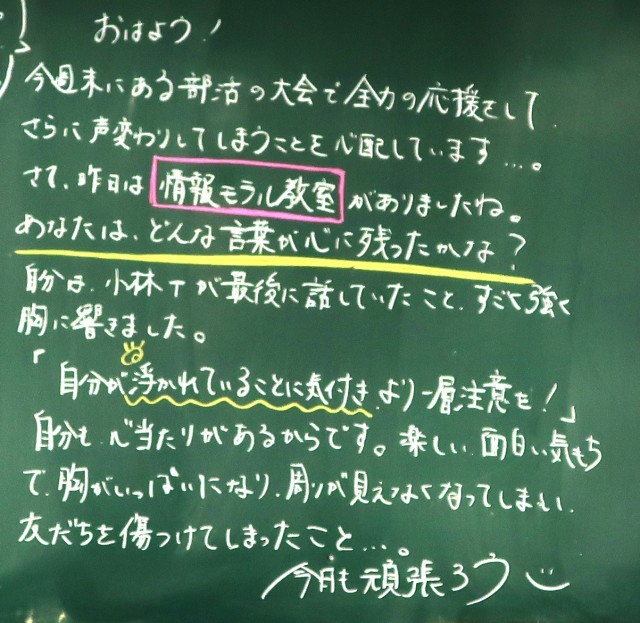 おはよう！
今週末にある部活の大会で全力の応援をして、
さらに声変わりしてしまうことを心配しています…。
さて、昨日は 情報モラル教室 がありましたね。
あなたは、どんな言葉が心に残ったかな？
自分は、小林Tが最後に話していたこと、すごく強く
胸に響きました。
「自分が浮かれていることに気付き、より一層注意を！」
自分も心当たりがあるからです。楽しい、面白い気もち
で、胸がいっぱいになり、周りが見えなくなってしまい、
友だちを傷つけてしまったこと…。
今日も頑張ろう